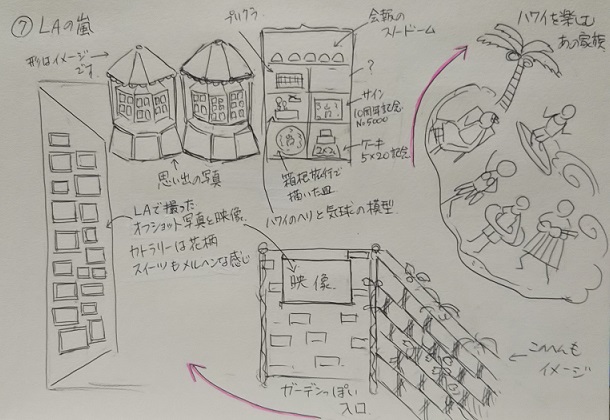 ⑦ LAの嵐
形はイメージです
プリクラ
会報の
スノードーム
ハワイを楽しむ
あの家族
?
サイン
10周年記念
No.5000
ケーキ
5×20記念
思い出の写真
箱根旅行で
描いた皿
ハワイのヘリと気球の模型
LAで撮った
オフショット写真と映像
カトラリーは花柄
スイーツもメルヘンな感じ
映像
ガーデンっぽい
入口
このへんも
イメージ